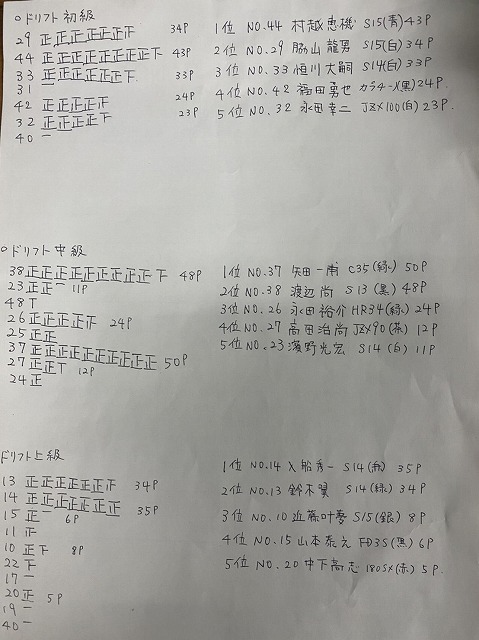 ○ドリフト初級
29 正正正正正正下 34P
44 正正正正正正正正下 43P
33 正正正正正正下 33P
31 一
42 正正正正正 24P
32 正正正正下 23P
40 一
1位 NO.44 村越恵機 S15(青)43P
2位 NO.29 脇山龍男 S15(白)34P
3位 NO.33 恒川大嗣 S14(白)33P
4位 NO.42 福田勇也 (黒)24P.
5位 NO.32 永田幸二 JZX100(白)23P.
○ドリフト中級
38 正正正正正正正正正下 48P
23 正正一 11P
48 T
26 正正正正正 24P
25 正正
37 正正正正正正正正正正 50P
27 正正T 12P
24 正
1位 NO.37 矢田一甫 C35(緑) 50P
2位 NO.38 渡辺尚 S13(黒) 48P
3位 NO.26 永田裕介 HR34(緑) 24P
4位 NO.27 高田治尚 JZX90(茶) 12P
5位 NO.23 濱野光宏 S14(白) 11P
ドリフト上級
13 正正正正正正正 34P
14 正正正正正正正 35P
15 正一 6P
11 正
10 正下 8P
22 下
17 一
20 正 5P
19 一
40 一
1位 NO.14 入船秀一 S14 35P
2位 NO.13 鈴木翼 S14(緑) 34P
3位 NO.10 近藤叶夢 S15(銀) 8P
4位 NO.15 山本泰 FD3S(黒) 6P
5位 NO.20 中下高志 180SX(赤) 5P.